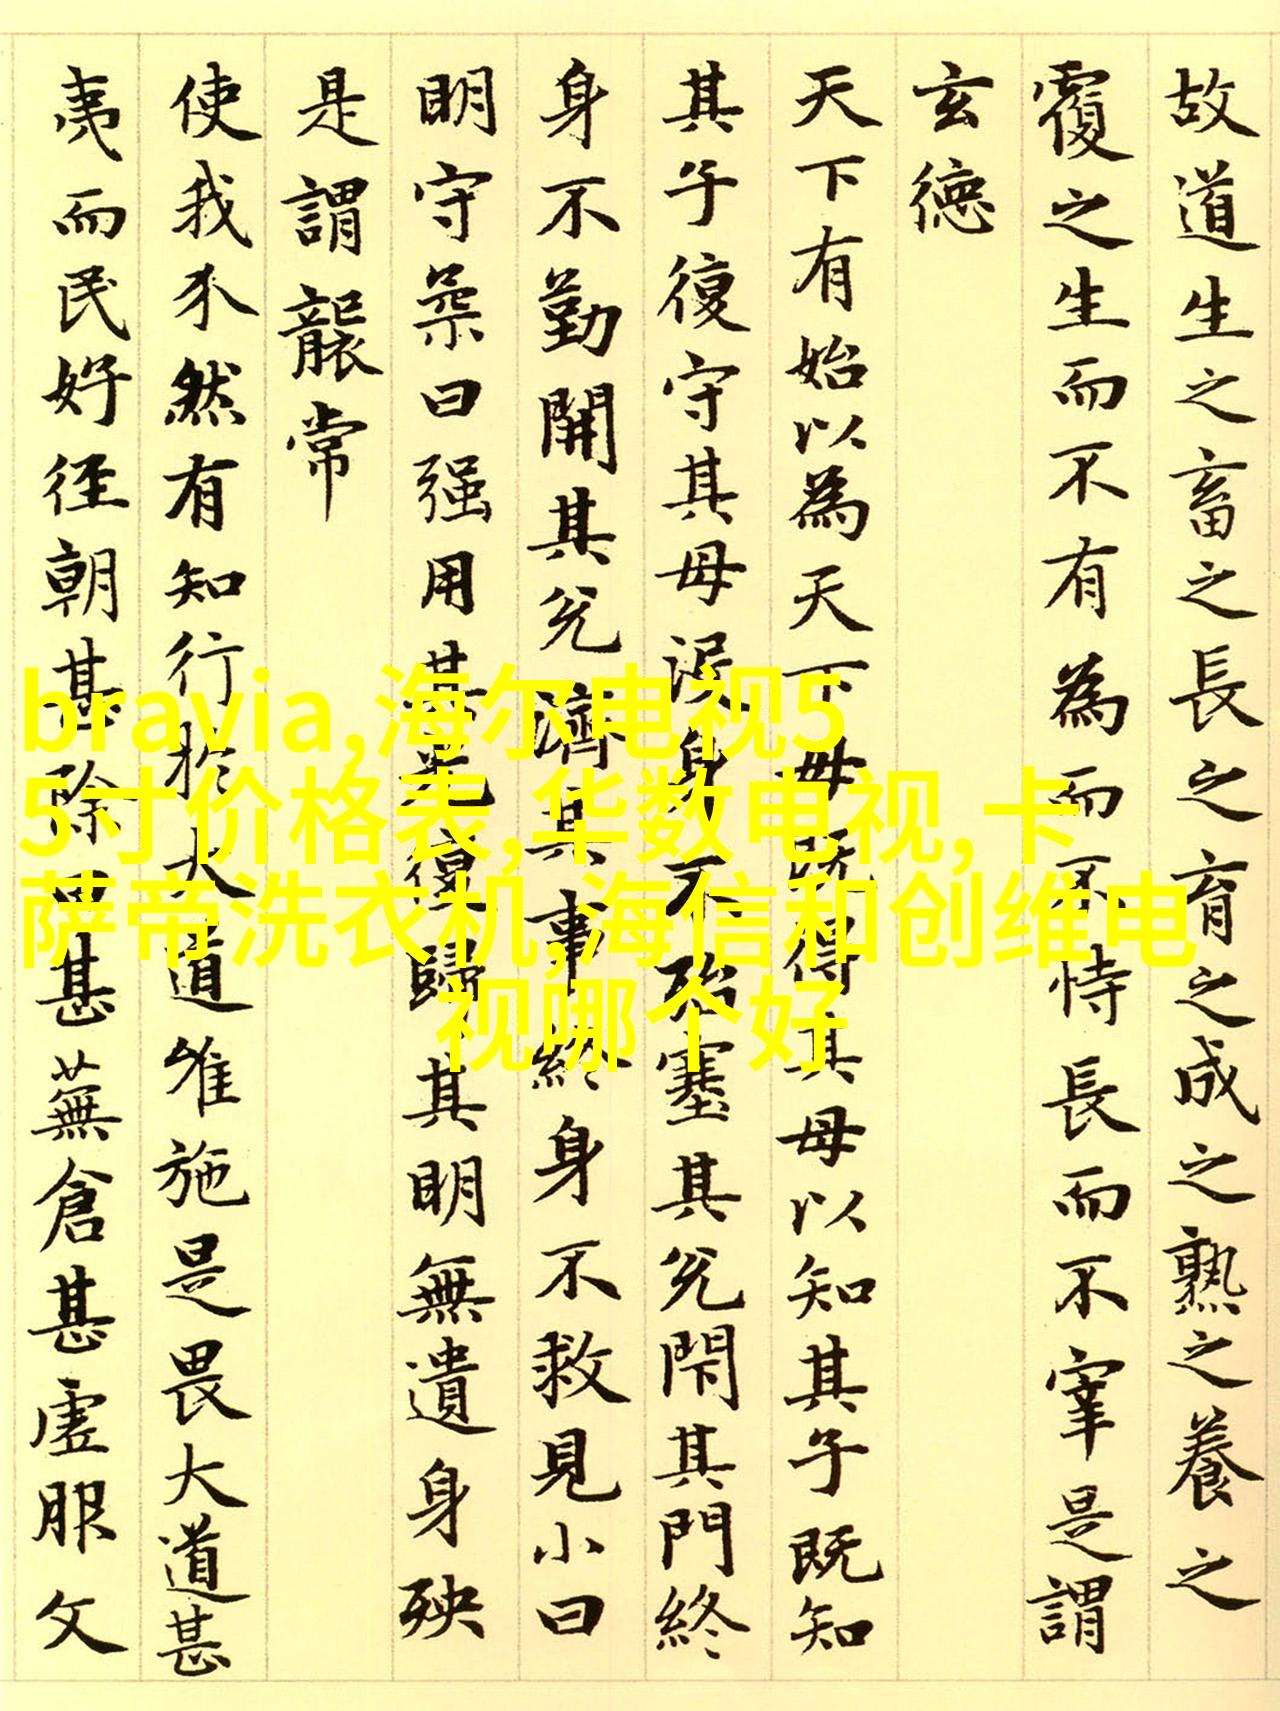 故道生之畜之長之育之成之熟之養之
覆之生而不有為而不恃長而不宰是謂
玄德
天下有始以為天下母既得其母以知其子既知
其子復守其母没身不殆塞其兌閇其門終
身不勤開其兌濟其事終身不救見小曰
明守柔曰强用其光復歸其明無遺身殃
是謂襲常
使我介然有知行於大道唯施是畏大道甚
夷而民好径朝甚除田甚蕪倉甚虛服文
bravia,海尔电视5
5寸价格表,华数电视,卡
萨帝洗衣机,海信和创维电
视哪个好